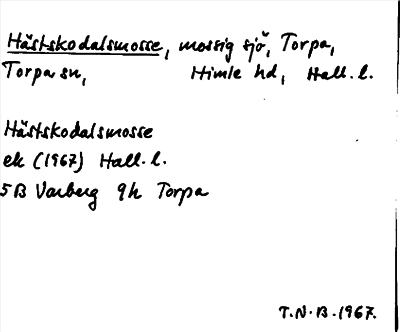 Hästskodalsmosse, mossig sjö, Torpa,
Torpa sn, Himle hd, Hall. l.
Hästskodalsmosse
ek (1967) Hall. l.
5B Varberg 9h Torpa
T.N.B. 1967.